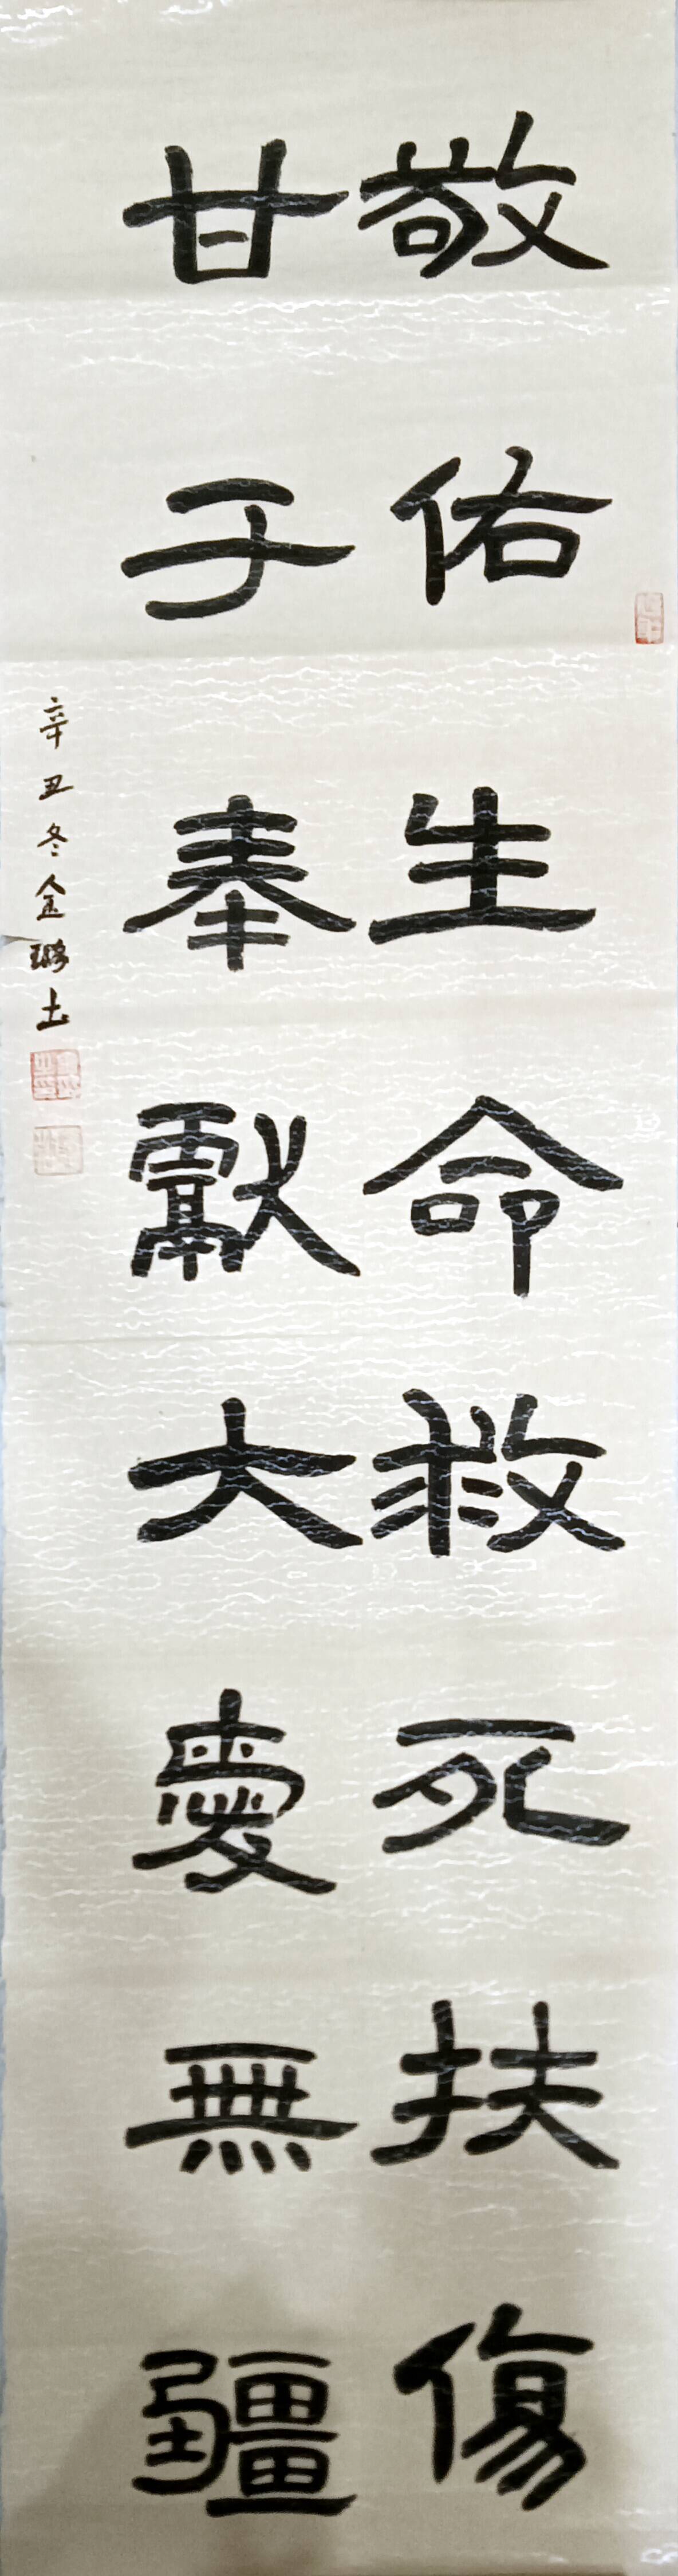 敬佑生命救死扶傷
甘于奉獻大愛無疆
辛丑冬金璐书